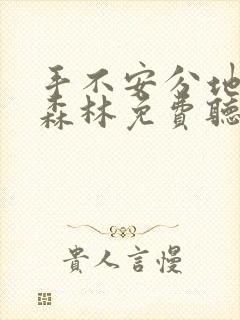 手不安分地
森林免费聽
貴人言慢